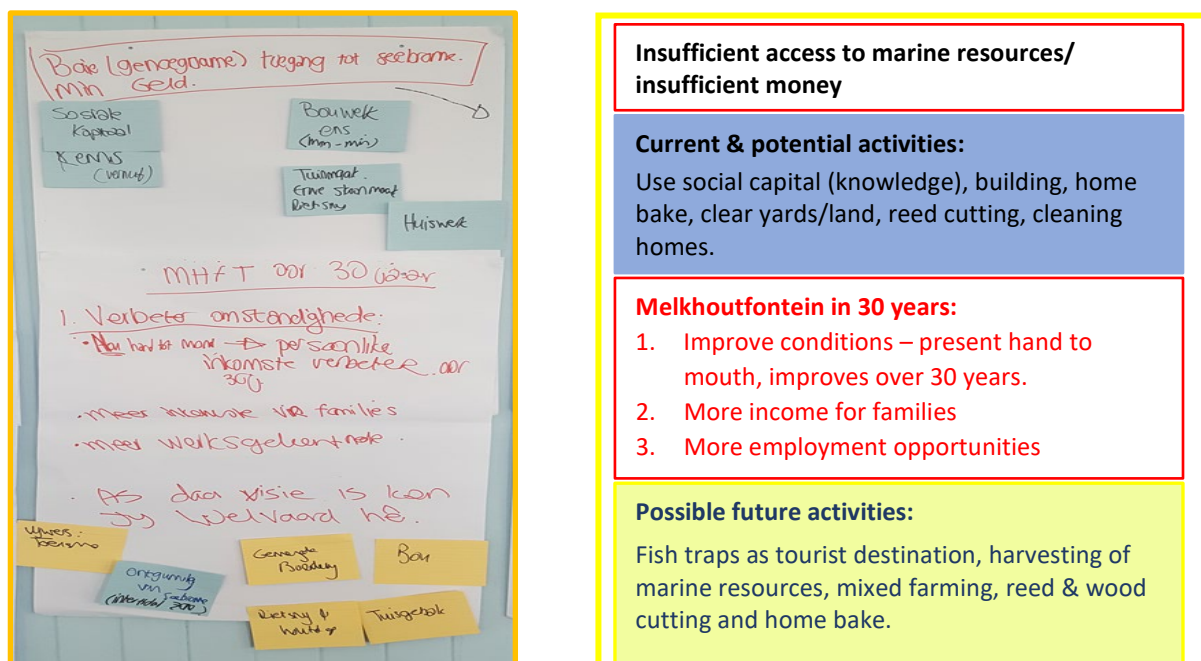 Baie (genoegsame) toegang tot seebronne.
Min Geld.
Sosiale
Kapitaal
Kennis
(vernuf)
Bouwerk
ens
(min-min)
Erwe skoonmaak
Rietsny
Huiswerk
MHFT oor 30 jaar
1. Verbeter omstandighede:
hand tot mond → persoonlike
inkomste verbeter oor
30j
• meer inkomste vir families
• meer werksgeleenthede.
• As daar visie is kan
jy Welvaard hê.
Toerisme
Ontginning
van seebronne
(intertidal zone)
Gemengde
Boerdery
Bou
Rietsny &
Tuisgebak
Insufficient access to marine resources/
insufficient money
Current & potential activities:
Use social capital (knowledge), building, home
bake, clear yards/land, reed cutting, cleaning
homes.
Melkhoutfontein in 30 years:
1. Improve conditions – present hand to
mouth, improves over 30 years.
2. More income for families
3. More employment opportunities
Possible future activities:
Fish traps as tourist destination, harvesting of
marine resources, mixed farming, reed & wood
cutting and home bake.